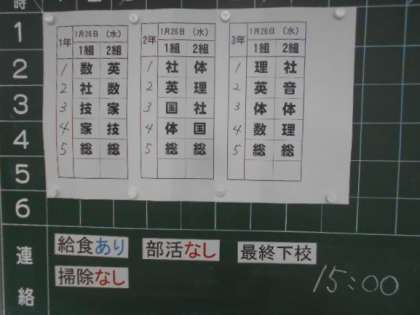 時
1
2
3
4
5
6
1年 1月26日 (水)
1組 2組
1 数 英
2 社 数
3 技 家
4 家 技
5 総 総
2年 1月26日 (水)
1組 2組
1 社 体
2 英 理
3 国 社
4 体 国
5 総 総
3年 1月26日 (水)
1組 2組
1 理 社
2 英 音
3 体 体
4 数 理
5 総 総
連絡
給食あり 部活なし 最終下校
掃除なし 15:00